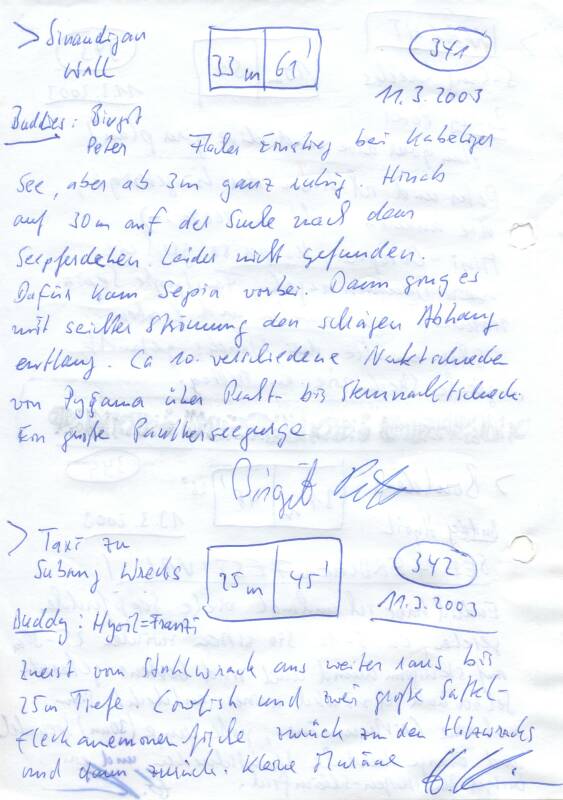 > Sinandigan
Wall
33 m 61'
341
11.3.2003
Buddies: Birgit
Peter
Einstieg bei kabeliger
See, aber ab 3m ganz ruhig. Hinab
auf 30m auf der Suche nach dem
Seepferdchen. Leider nicht gefunden.
Dafür kam Sepia vorbei. Dann ging es
mit seichter Strömung den schrägen Abhang
entlang. Ca 10 verschiedene Nacktschnecken
von Pyjama über Pracht bis Sternnacktschnecke.
Ein große Pantherseegurge
Birgit
> Taxi zu
Subung Wrecks
25 m 45'
342
11.3.2003
Buddy:
Zuerst vom Stahlwrack aus weiter raus bis
25m Tiefe Cowfish und zwei große Sattel-
fleckanemonenfische, zurück zu den Holzwracks
und dann zurück. Kleine Muräne